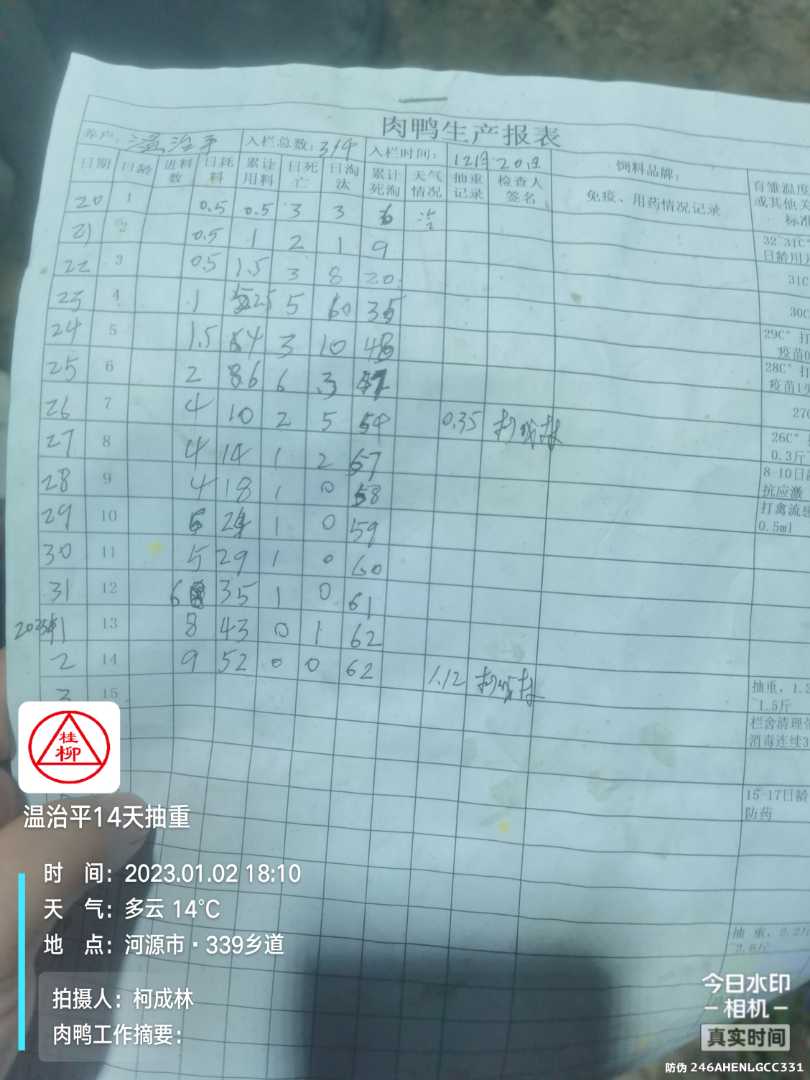 肉鸭生产报表
养户: 温治平 入栏总数: 入栏时间: 12月20日 饲料品牌:
日期 日龄 进料数 日耗料 累计用料 日死亡 日淘汰 累计死淘 天气情况 抽重记录 检查人签名 免疫、用药情况记录
20 1 0.5 0.5 3 3 6
21 2 0.5 1 2 1 9 32°31C°
日龄用
22 3 0.5 1.5 3 8 20 31C
23 4 1 5 60 35 30C
24 5 1.5 3 10 48 29C° 打
疫苗
25 6 2 6 3 28C° 打
疫苗1
26 7 4 10 2 5 0.35 27C
27 8 4 14 1 2 57 26C°
0.3斤
28 9 4 18 1 0 58 8-10日龄
抗应激
29 10 1 0 59 打禽流感
0.5ml
30 11 5 29 1 0 60
31 12 6 35 1 0 61
1 13 8 43 0 1 62
2 14 9 52 0 0 62 1.12 抽重，1.
~1.5斤
3 15 栏舍清理
消毒连续3
15-17日龄
防药
抽重，2.2
桂柳
温治平14天抽重
时 间: 2023.01.02 18:10
天 气: 多云 14℃
地 点: 河源市·339乡道
拍摄人: 柯成林
肉鸭工作摘要:
今日水印
-相机-
真实时间
防伪 246AHENLGCC331